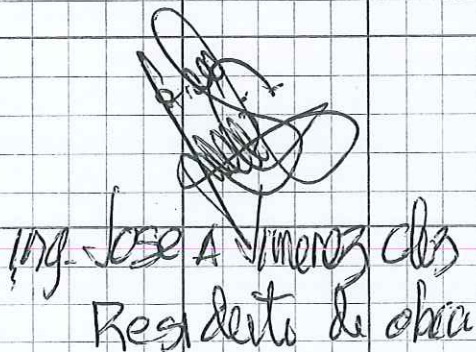 Ing. Jose A Jimenez
Residente de obra